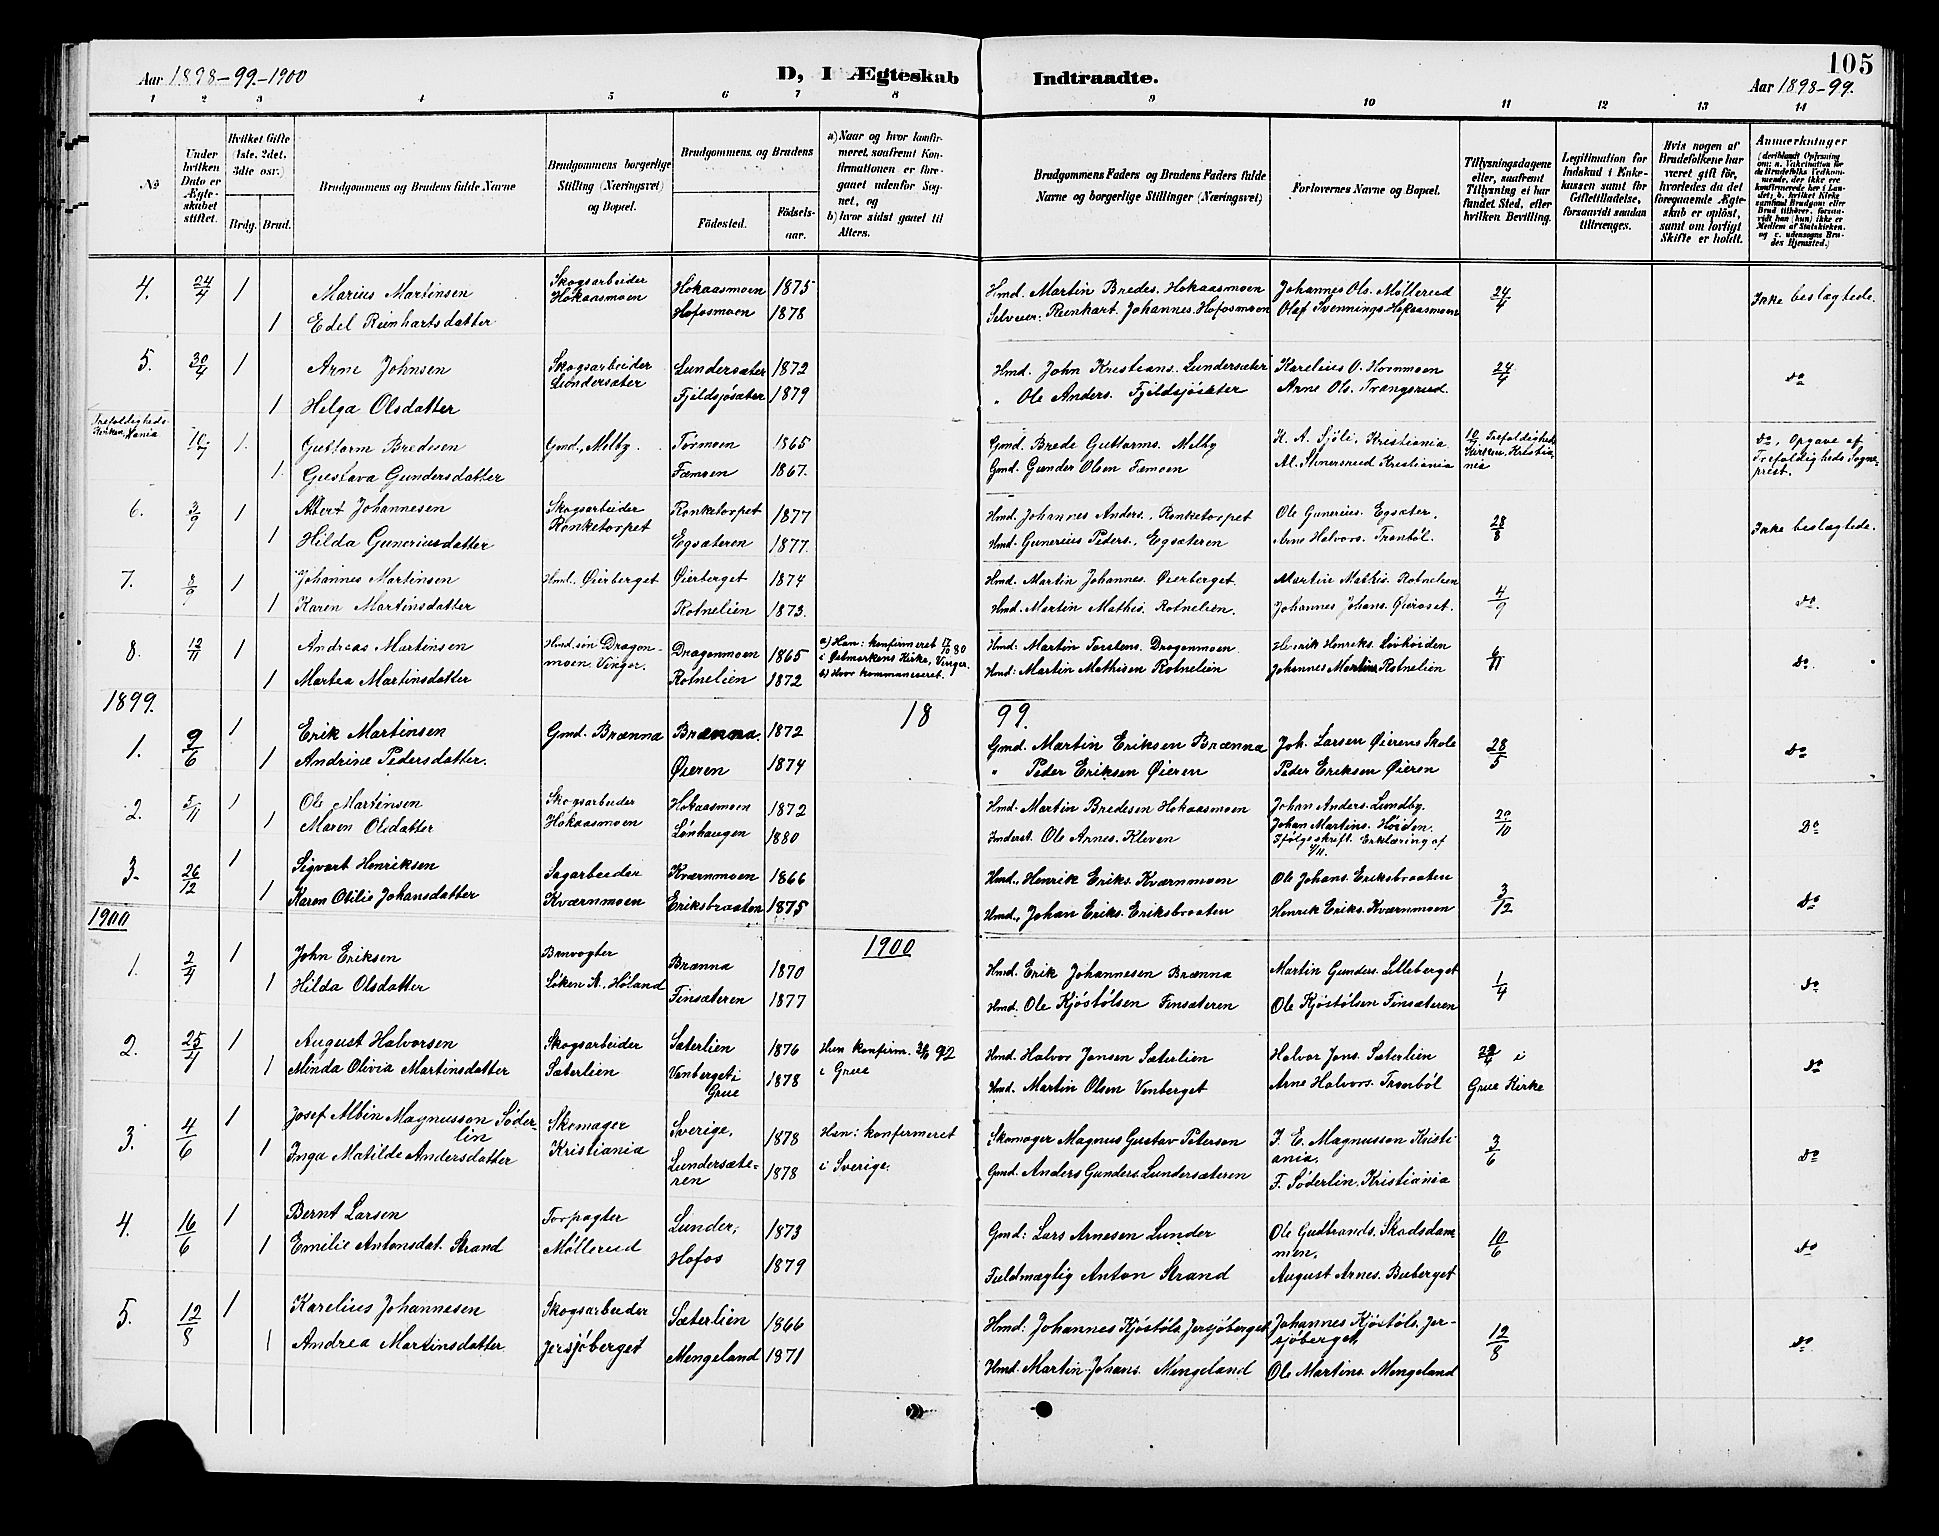 Aar 1898-99-1900
D, I Ægteskab Indtraadte.
105
Aar 1898-99.
1 2 3 4 5 6 7 8 9 10 11 12 13 14
No
Under hvilken Dato er Ægteskabet stiftet.
Hvilket Gifte (1ste, 2det, 3die osv.)
Brdg. Brud.
Brudgommens og Brudens fulde Navne
Brudgommens borgerlige Stilling (Næringsvei) og Bopæl.
Brudgommens og Brudens
Födested.
Födselsaar.
a) Naar og hvor konfirmeret, saafremt Konfirmationen er foregaaet udenfor Sognet, og
b) hvor sidst gaaet til Alters.
Brudgommens Faders og Brudens Faders fulde Navne og borgerlige Stillinger (Næringsvei)
Forlovernes Navne og Bopæl.
Tillysningsdagene eller, saafremt Tillysning ei har fundet Sted, efter hvilken Bevilling.
Legitimation for Indskud i Enkekassen samt for Giftetilladelse, forsaavidt saadan tiltrænges.
Hvis nogen af Brudefolkene har været gift för, hvorledes da det foregaaende Ægteskab er oplöst, samt om lovligt Skifte er holdt.
Anmærkninger (deriblandt Oplysning om: a. Vakcination for de Brudefolks Vedkommende, der ikke ere konfirmerede her i Landet; b. hvilket Kirkesamfund Brudgom eller Brud tilhörer, forsaavidt han (hun) ikke er Medlem af Statskirken, og c. udensogns Brudes Hjemsted.)
4. 24/4 1 Marius Martinsen Skogsarbeider Hokaasmoen Hokaasmoen 1875 Hmd. Martin Bredes. Hokaasmoen Johannes Ols. Møllerud 24/4 Ikke beslagtede.
1 Edel Reinhartsdatter Hofosmoen 1878 Selveier: Reinhart Johannes. Hofosmoen Olaf Svennings. Hokaasmoen
5. 30/4 1 Arne Johnsen Skogsarbeider Lundersæter Lundersæter 1872 Hmd. John Kristians. Lundersæter Karelius O. Hornmoen 24/4 Do
1 Helga Olsdatter Fjeldsjøsæter 1879 " Ole Anders. Fjeldsjøsæter Arne Ols. Trangsrud.
Trefoldigheds Kirken, Kania 10/7 1. Guttorm Bredesen Gmd., Melby Tørmoen 1865 Gmd. Brede Guttorms. Melby K. A. Sjöli, Kristiania 10/7 Trefoldigheds Kirken, Kristiania Do, Opgave af Trefoldigheds Sogneprest.
1. Gustava Gundersdatter Fæmoen 1867. Gmd. Gunder Olsen Femoen Al. Stenersrud Kristiania
6. 3/9 1 Albert Johannesen Skogsarbeider Ronketorpet Ronketorpet 1877 Hmd. Johannes Anders., Ronketorpet Ole Gunerius. Egsæter. 28/8 Ikke beslagtede.
1 Hilda Guneriusdatter Egsæteren 1877. Hmd. Gunerius Peders., Egsæteren Arne Halvors. Tronböl.
7. 8/9 1 Johannes Martinsen Hmd. Øierberget Øierberget 1874 Hmd. Martin Johannes. Øierberget. Martin Mathis. Rotnelien 4/9 Do.
1 Karen Martinsdatter Rotnelien 1873. Hmd. Martin Mathis. Rotnelien. Johannes Johans. Øieroset.
8. 12/11 1 Andreas Martinsen Hmd. sön Dragonmoen, Vinger. Dragonmoen 1865 a) Han: konfirmeret 17/10 80 i Østmarkens Kirke, Vinger. b) Hvor kommuniceret. Hmd: Martin Torstens. Dragonmoen Henrik Henriks. Løvhöiden 6/11 Do.
1 Martea Martinsdatter Rotnelien 1872 Hmd: Martin Mathisen Rotnelien Johannes Martins. Rotnelien
1899. 1899.
1. 9/6 1 Erik Martinsen Gmd. Brænna Brænna. 1872 Gmd. Martin Eriksen Brænna Joh. Larsen Øierens Skole 28/5 Do
1 Andrine Pedersdatter. Øieren 1874 " Peder Eriksen Øieren Peder Eriksen Øieren
2. 5/11 1 Ole Martinsen Skogsarbeider Hokaasmoen Hokaasmoen 1872 Hmd. Martin Bredesen Hokaasmoen Johan Anders. Lundby. 29/10 Do
1 Maren Olsdatter Lønhaugen 1880 Inderst. Ole Arnes. Kleven Johan Martins. Høiden.
Ifølge skrift. Erklæring af
3. 26/12 1 Sigvart Henriksen Sagarbeider Kværnmoen Kværnmoen 1866 Hmd., Henrik Eriks. Kværnmoen Ole Johans. Eriksbraaten 3/12 Do
1 Karen Otilie Johansdatter Eriksbraaten 1875 Hmd., Johan Eriks. Eriksbraaten Henrik Eriks. Kværnmoen
1900 1900
1. 2/4 1 John Eriksen Banvogter Løken St., Høland Brænna 1870 Hmd. Erik Johannesen Brænna Martin Gunders. Lilleberget 1/4 Do
1 Hilda Olsdatter Finsæteren 1877 Hmd. Ole Kjöstölsen Finsæteren Ole Kjöstölsen Finsæteren
2. 25/4 1 August Halvorsen Skogsarbeider Sæterlien Sæterlien 1876 Hun konfirm. 92 i Grue Hmd. Halvor Jonsen Sæterlien Halvor Jons. Sæterlien 22/4 i Grue Kirke Do
1 Minda Olivia Martinsdatter Venberget i Grue 1878 Hmd. Martin Olsen Venberget Arne Halvors. Tronböl
3. 4/6 1 Josef Albin Magnusson Søderlin Skomager Kristiania Sverige. 1878 Han: konfirmeret i Sverige. Skomager Magnus Gustav Peterson J. E. Magnusson Kristiania. 3/6 Do
1 Inga Matilde Andersdatter Lundersæteren 1878 Gmd. Anders Gunders. Lundersæteren F. Søderlin. Kristiania
4. 16/6 1 Bernt Larsen Forpagter Møllerud Lunder, 1873 Gmd: Lars Arnesen Lunder Ole Gudbrands. Skadsdammen. 10/6 Do
1 Emilie Antonsdat. Strand Hofos 1879 Fuldmægtig Anton Strand August Arnes. Buberget
5. 12/8 1 Karelius Johannesen Skogsarbeider Jersjöberget Sæterlien 1866 Hmd: Johannes Kjöstöls. Jersjöberget Johannes Kjöstöls. Jersjöberget 12/8 Do.
1 Andrea Martinsdatter. Mengeland 1871 Hmd. Martin Johans. Mengeland Ole Martins. Mengeland